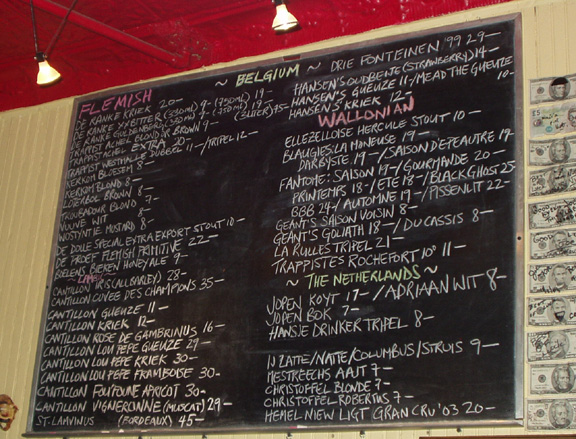 ~ BELGIUM ~
FLEMISH
DE RANKE KRIEK 20-
DE RANKE XX BITTER (330ML) 9- (750ML) 19-
DE RANKE GULDENBERG (330ML) 9- (750ML) 19- (3LITER) 75-
TRAPPIST ACHEL BLOND OR BROWN 9-
TRAPPIST ACHEL EXTRA 20-
TRAPPIST WESTMALLE DUBBEL 11-/TRIPEL 12-
KERKOM BLOESEM 8-
KERKOM BLOND 8-
LOTERBOL BROWN 8-
TROUBADOUR BLOND 7-
VUUVE WIT 8-
WOSTYNTJE MUSTARD 8-
DE DOLLE SPECIAL EXTRA EXPORT STOUT 10-
DE PROEF FLEMISH PRIMITIVE 22-
BIELENS BIEREN HONEY ALE 9-
CANTILLON IRIS (ALL BARLEY) 28-
CANTILLON CUVEE DES CHAMPIONS 35-
CANTILLON GUEUZE 11-
CANTILLON KRIEK 12-
CANTILLON ROSE DE GAMBRINUS 16-
CANTILLON LOU PEPE GUEUZE 29-
CANTILLON LOU PEPE KRIEK 30-
CANTILLON LOU PEPE FRAMBOISE 30-
CANTILLON FOU'FOUNE APRICOT 30-
CANTILLON VIGNERONNE (MUSCAT) 29-
ST. LAMVINUS (BORDEAUX) 45-
DRIE FONTEINEN '99 29-
HANSEN'S OUDBEITJE (STRAWBERRY) 14-
HANSEN'S GUEUZE 11-/MEAD THE GUEUZE 10-
HANSEN'S KRIEK 12-
WALLONIAN
ELLEZELLOISE HERCULE STOUT 10-
BLAUGIES: LA MONEUSE 19-
DARBYSTE 19-/SAISON D'EPEAUTRE 19-
FANTOME: SAISON 19-/GOURMANDE 20-
PRINTEMPS 18-/ETE 18-/BLACK GHOST 25
BBB 24-/AUTOMNE 19-/PISSENLIT 22-
GEANT'S SAISON VOISIN 8-
GEANT'S GOLIATH 18-/DU CASSIS 8-
LA RULLES TRIPEL 21-
TRAPPISTES ROCHEFORT 10° 11-
~ THE NETHERLANDS ~
JOPEN KOYT 17-/ADRIAAN WIT 8-
JOPEN BOK 7-
HANSJE DRINKER TRIPEL 8-
IJ ZATTE/NATTE/COLUMBUS/STRUIS 9-
MESTREECHS AAUT 7-
CHRISTOFFEL BLONDE 7-
CHRISTOFFEL ROBERTUS 7-
HEMEL NIEW LIGT GRAN CRU '03 20-